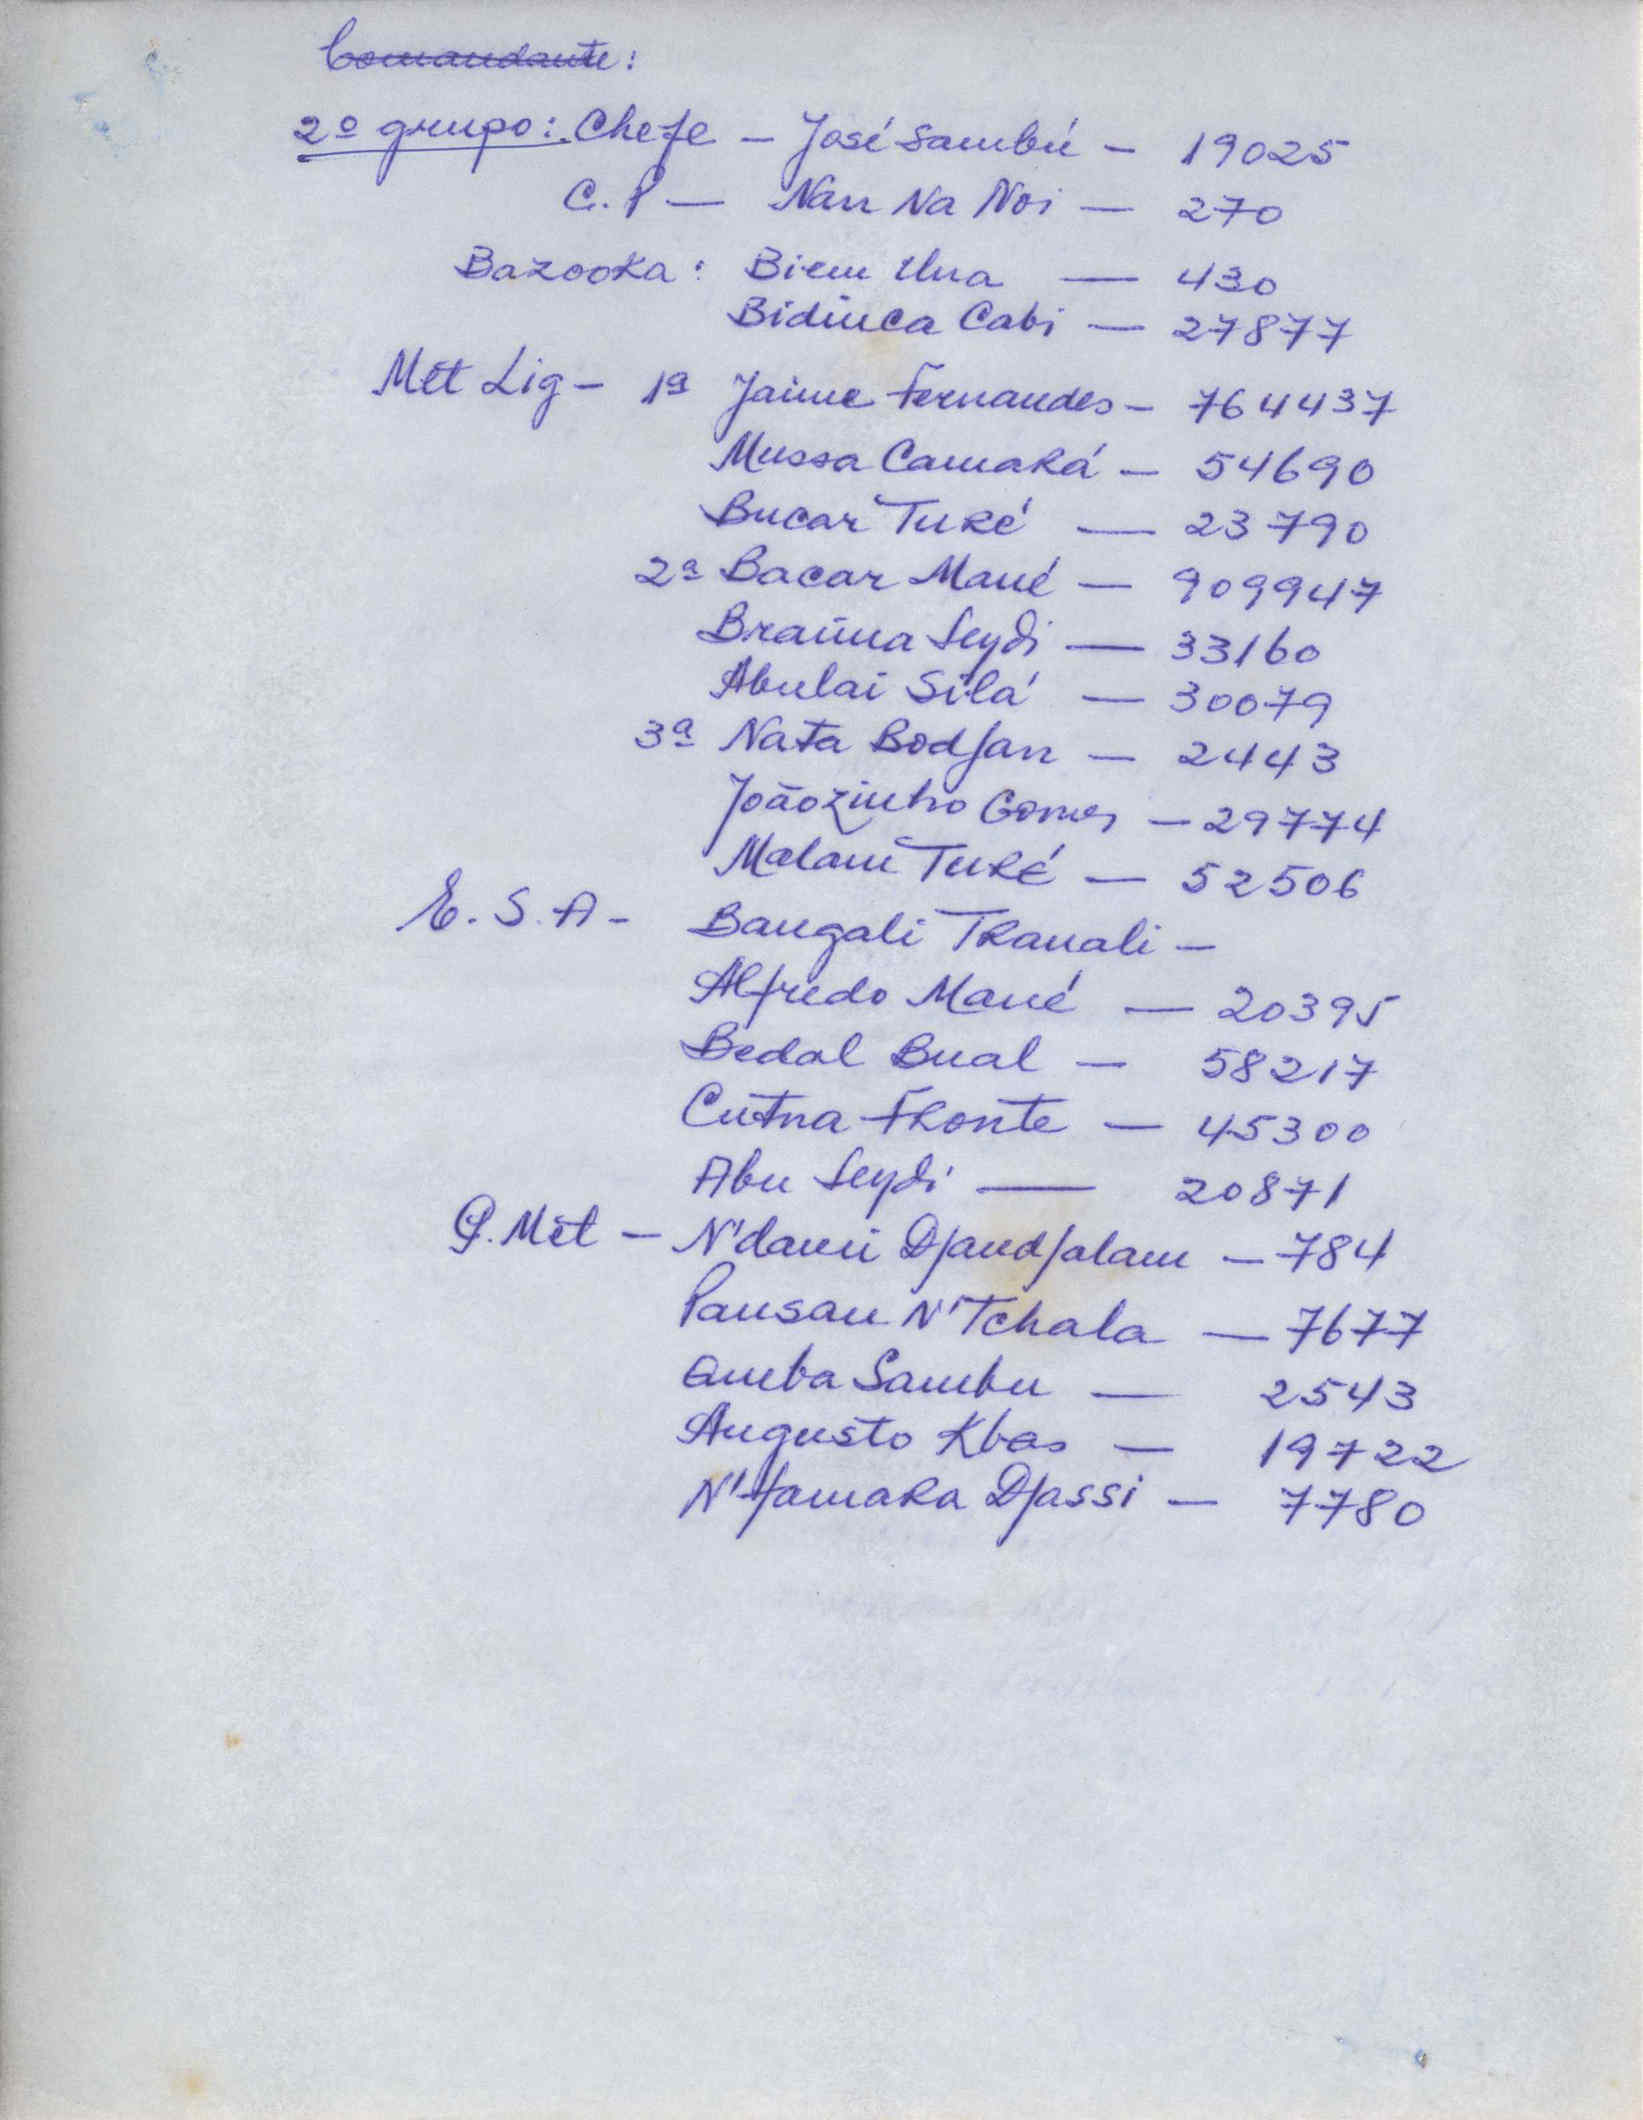 Comandante:
2º grupo: Chefe — José Sambú — 19025
C. P — Nan Na Noi — 270
Bazooka: Biem Una — 430
Bidiuca Cabi — 27877
Mét Lig — 1ª Jaime Fernandes — 764437
Mussa Camará — 54690
Bucar Turé — 23790
2ª Bacar Mané — 909947
Braima Seydi — 33160
Abulai Silá — 30079
3ª Nata Bodjan — 2443
Joãozinho Gomes — 29774
Malam Turé — 52506
E. S. A — Bangali Tranali —
Alfredo Mané — 20395
Bedal Bual — 58217
Cutna Fronte — 45300
Abu Seydi — 20871
P. Mét — N'dami Djandjalam — 784
Pansau N'Tchala — 7677
Sambu — 2543
Augusto — 19722
N'famara Djassi — 7780